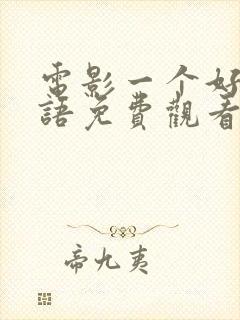 電影一个好
語免費觀看
帝九夷